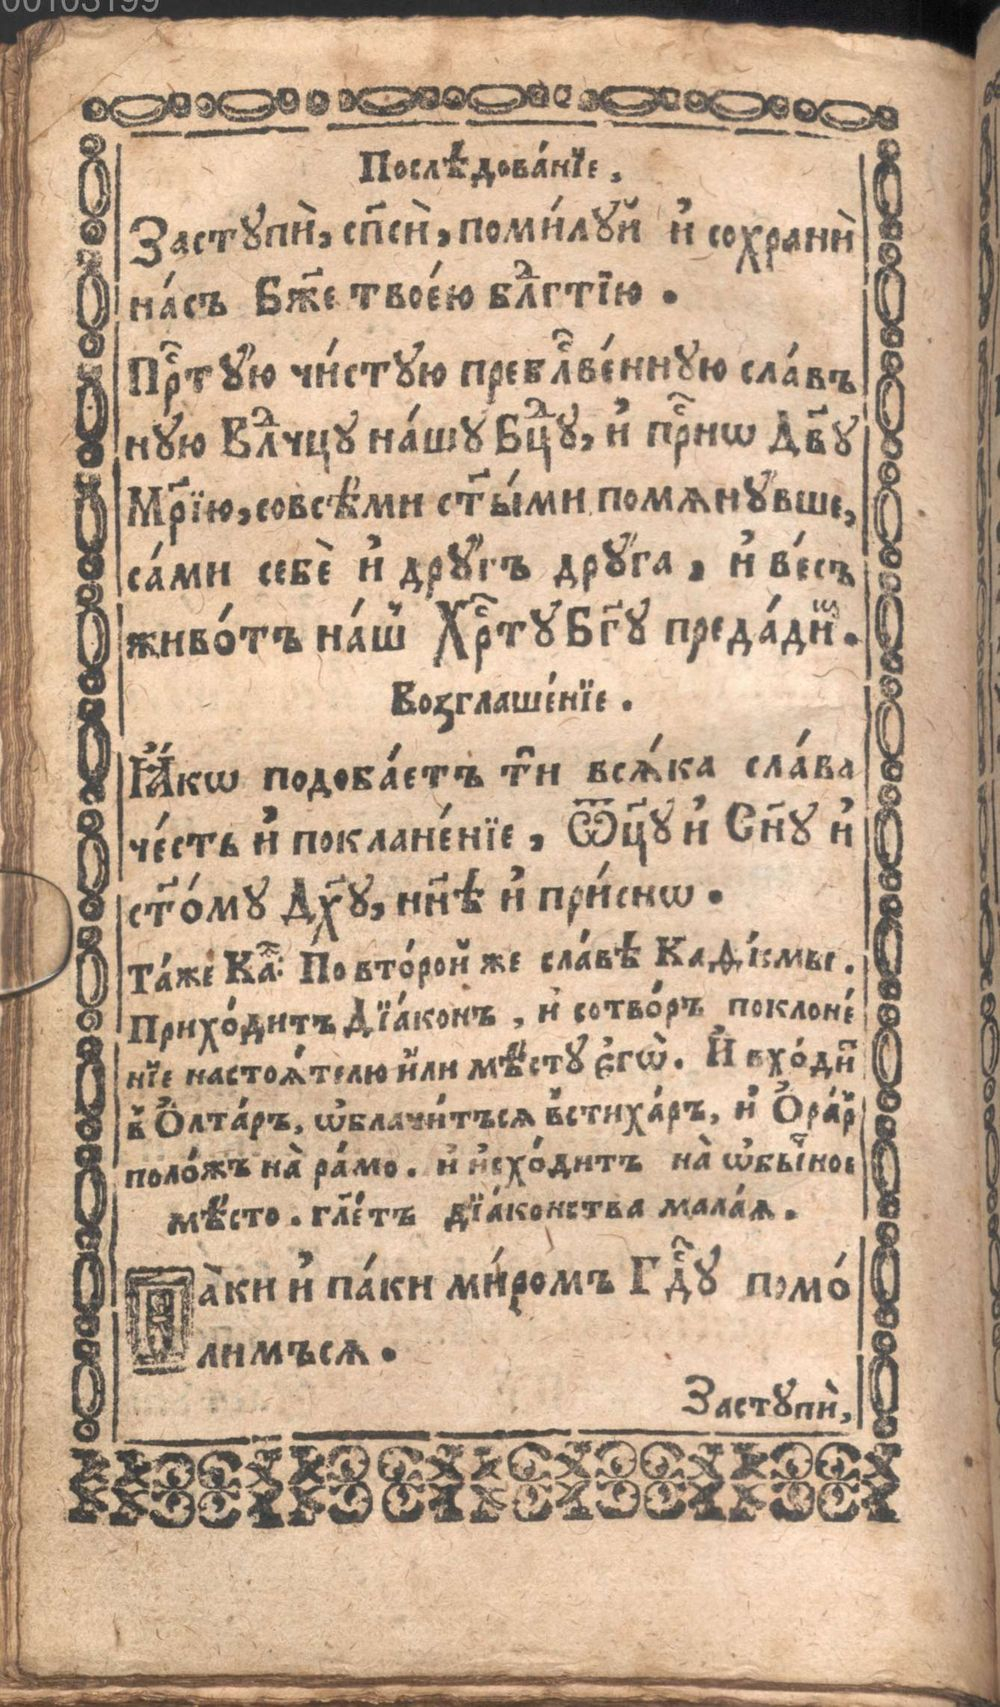 00103199
Послѣдова́нїе,
Заступѝ, сп҃сѝ, поми́луй и҆ сохранѝ
на́съ Бж҃е твое́ю бл҃гⷣтїю.
Прⷭ҇ту́ю чи́стую превлⷭ҇ве́нную сла́въ
ную Влⷣчцу на́шу Бцⷣу, и҆ прⷭ҇нѡ Дв҃у
Мр҃їю, совсѣ́ми ст҃ы́ми помѧну́вше,
са́ми себѐ и҆ дру́гъ дру́га, и҆ ве́сь
живо́тъ на́ш̾ Хрⷭ҇ту Бг҃у преда́диⷨ.
Возглаше́нїе.
Ꙗ҆́кѡ подоба́етъ тѝ всѧ́ка сла́ва
че́сть и҆ поклане́нїе, Ѿц҃у и҆ Сн҃у и҆
ст҃о́му Дх҃у, нн҃ѣ и҆ при́снѡ.
Та́же Каⷴ: По вто́рой же сла́вѣ Каѳі́смы.
Прихо́дитъ Дїа́конъ, и҆ сотво́ръ поклоне́
нїе настоѧ́телю и҆́ли мѣ́сту є҆гѡ̀. И҆ вхо́дⷩи
в̾ О҆лта́ръ, ѡ҆блачи́тъсѧ в̾стиха́ръ, и҆ Ѻ҆ра́р̾
поло́жъ на̀ ра́мо. и҆ и҆схо́дитъ на̀ ѡ҆бы́ⷱное
мѣ́сто. гл҃е́тъ дїа́конства мала́ѧ.
Па̀ки и҆ па́ки ми́ромъ Гдⷭ҇у помо́
лимъсѧ.
Заступѝ,